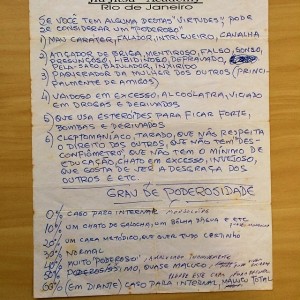 Academy
Rio de Janeiro
SE VOCÊ TEM ALGUMA DESTAS "VIRTUDES", PODE
SE CONSIDERAR UM "PODEROSO"
1) MAU CARATER, FALADOR, INTRIGUEIRO, CANALHA
2) ATIÇADOR DE BRIGA, MENTIROSO, FALSO, SONSO,
PRESUNÇOSO, LIBIDINOSO, DEPRAVADO,
PELA SACO, BAJULADOR, INXIRIDO
3) PAQUERADOR DA MULHER DOS OUTROS (PRINCI
PALMENTE DE AMIGOS)
4) VAIDOSO EM EXCESSO, ALCOÓLATRA, VICIADO
EM DROGAS E DERIVADOS
5) QUE USA ESTERÓIDES PARA FICAR FORTE,
BOMBAS E DERIVADOS
6) CLEPTOMANÍACO, TARADO, QUE NÃO RESPEITA
O DIREITO DOS OUTROS, QUE NÃO TEM "DES-
CONFIÔMETRO", QUE NÃO TEM O MÍNIMO DE
EDUCAÇÃO, CHATO EM EXCESSO, INVEJOSO,
QUE GOSTA DE VER A DESGRAÇA DOS
OUTROS E ETC.
GRAU DE PODEROSIDADE
0% CASO PARA INTERNAR
10% UM CHATO DE GALOCHA, UM BELHA E ETC
20% UM CARA METÓDICO, QUE QUER TUDO CERTINHO
30% NORMAL
40% MUITO "PODEROSO"
50% PODEROSÍSSIMO, QUASE MALUCO
60% (EM DIANTE) CASO PARA INTERNAR, MALUCO TOTAL